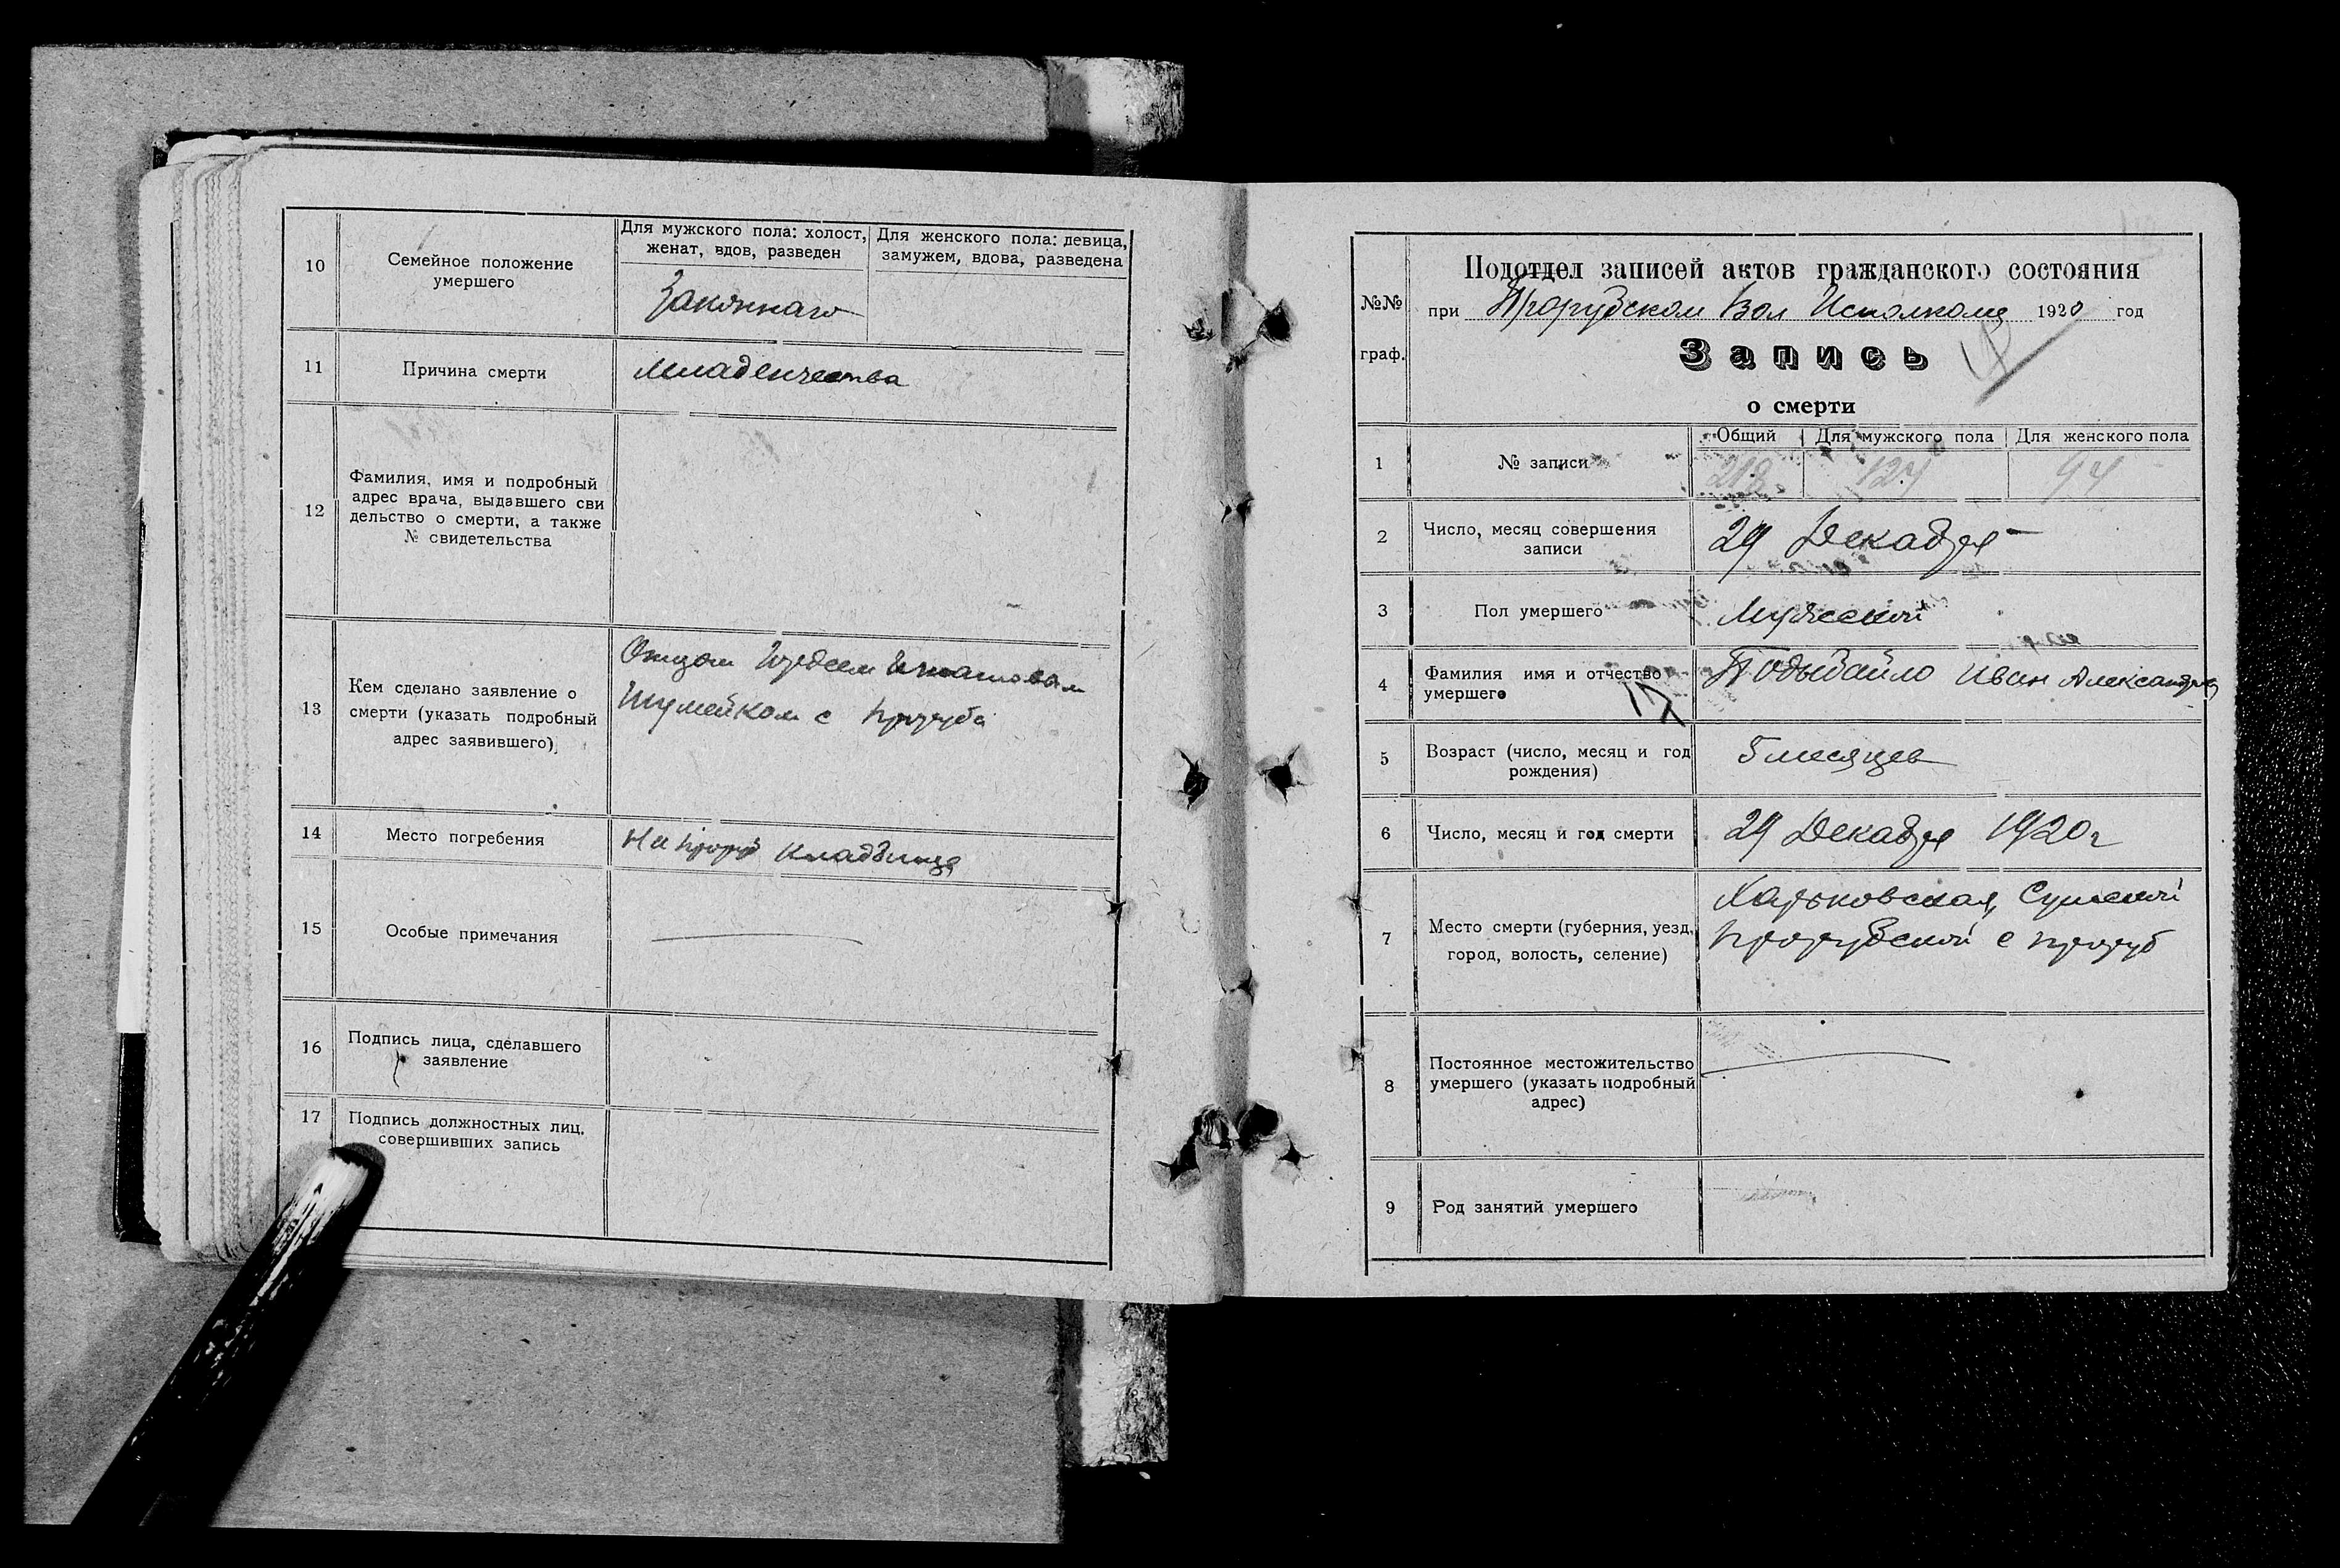 10
Семейное положение
умершего
Для мужского пола: холост,
женат, вдов, разведен
Для женского пола: девица,
замужем, вдова, разведена
Законнаго
11
Причина смерти
Младенчества
12
Фамилия, имя и подробный
адрес врача, выдавшего сви
дельство о смерти, а также
№ свидетельства
13
Кем сделано заявление о
смерти (указать подробный
адрес заявившего)
Отцом
Шумейком с
14
Место погребения
На кладбище
15
Особые примечания
16
Подпись лица, сделавшего
заявление
17
Подпись должностных лиц.
совершивших запись
№№
граф.
Подотдел записей актов гражданского состояния
при Прорубском Вол Исполкоме 1920 год
Запись
о смерти
Общий Для мужского пола Для женского пола
1
№ записи
218 124 94
2
Число, месяц совершения
записи
29 Декабря
3
Пол умершего
Мужской
4
Фамилия имя и отчество
умершего
Подыбайло Иван Александров
5
Возраст (число, месяц и год
рождения)
5 месяцев
6
Число, месяц и год смерти
29 Декабря 1920 г
7
Место смерти (губерния, уезд,
город, волость, селение)
Харьковская, Сумской
Прорубской с Проруб
8
Постоянное местожительство
умершего (указать подробный
адрес)
9
Род занятий умершего